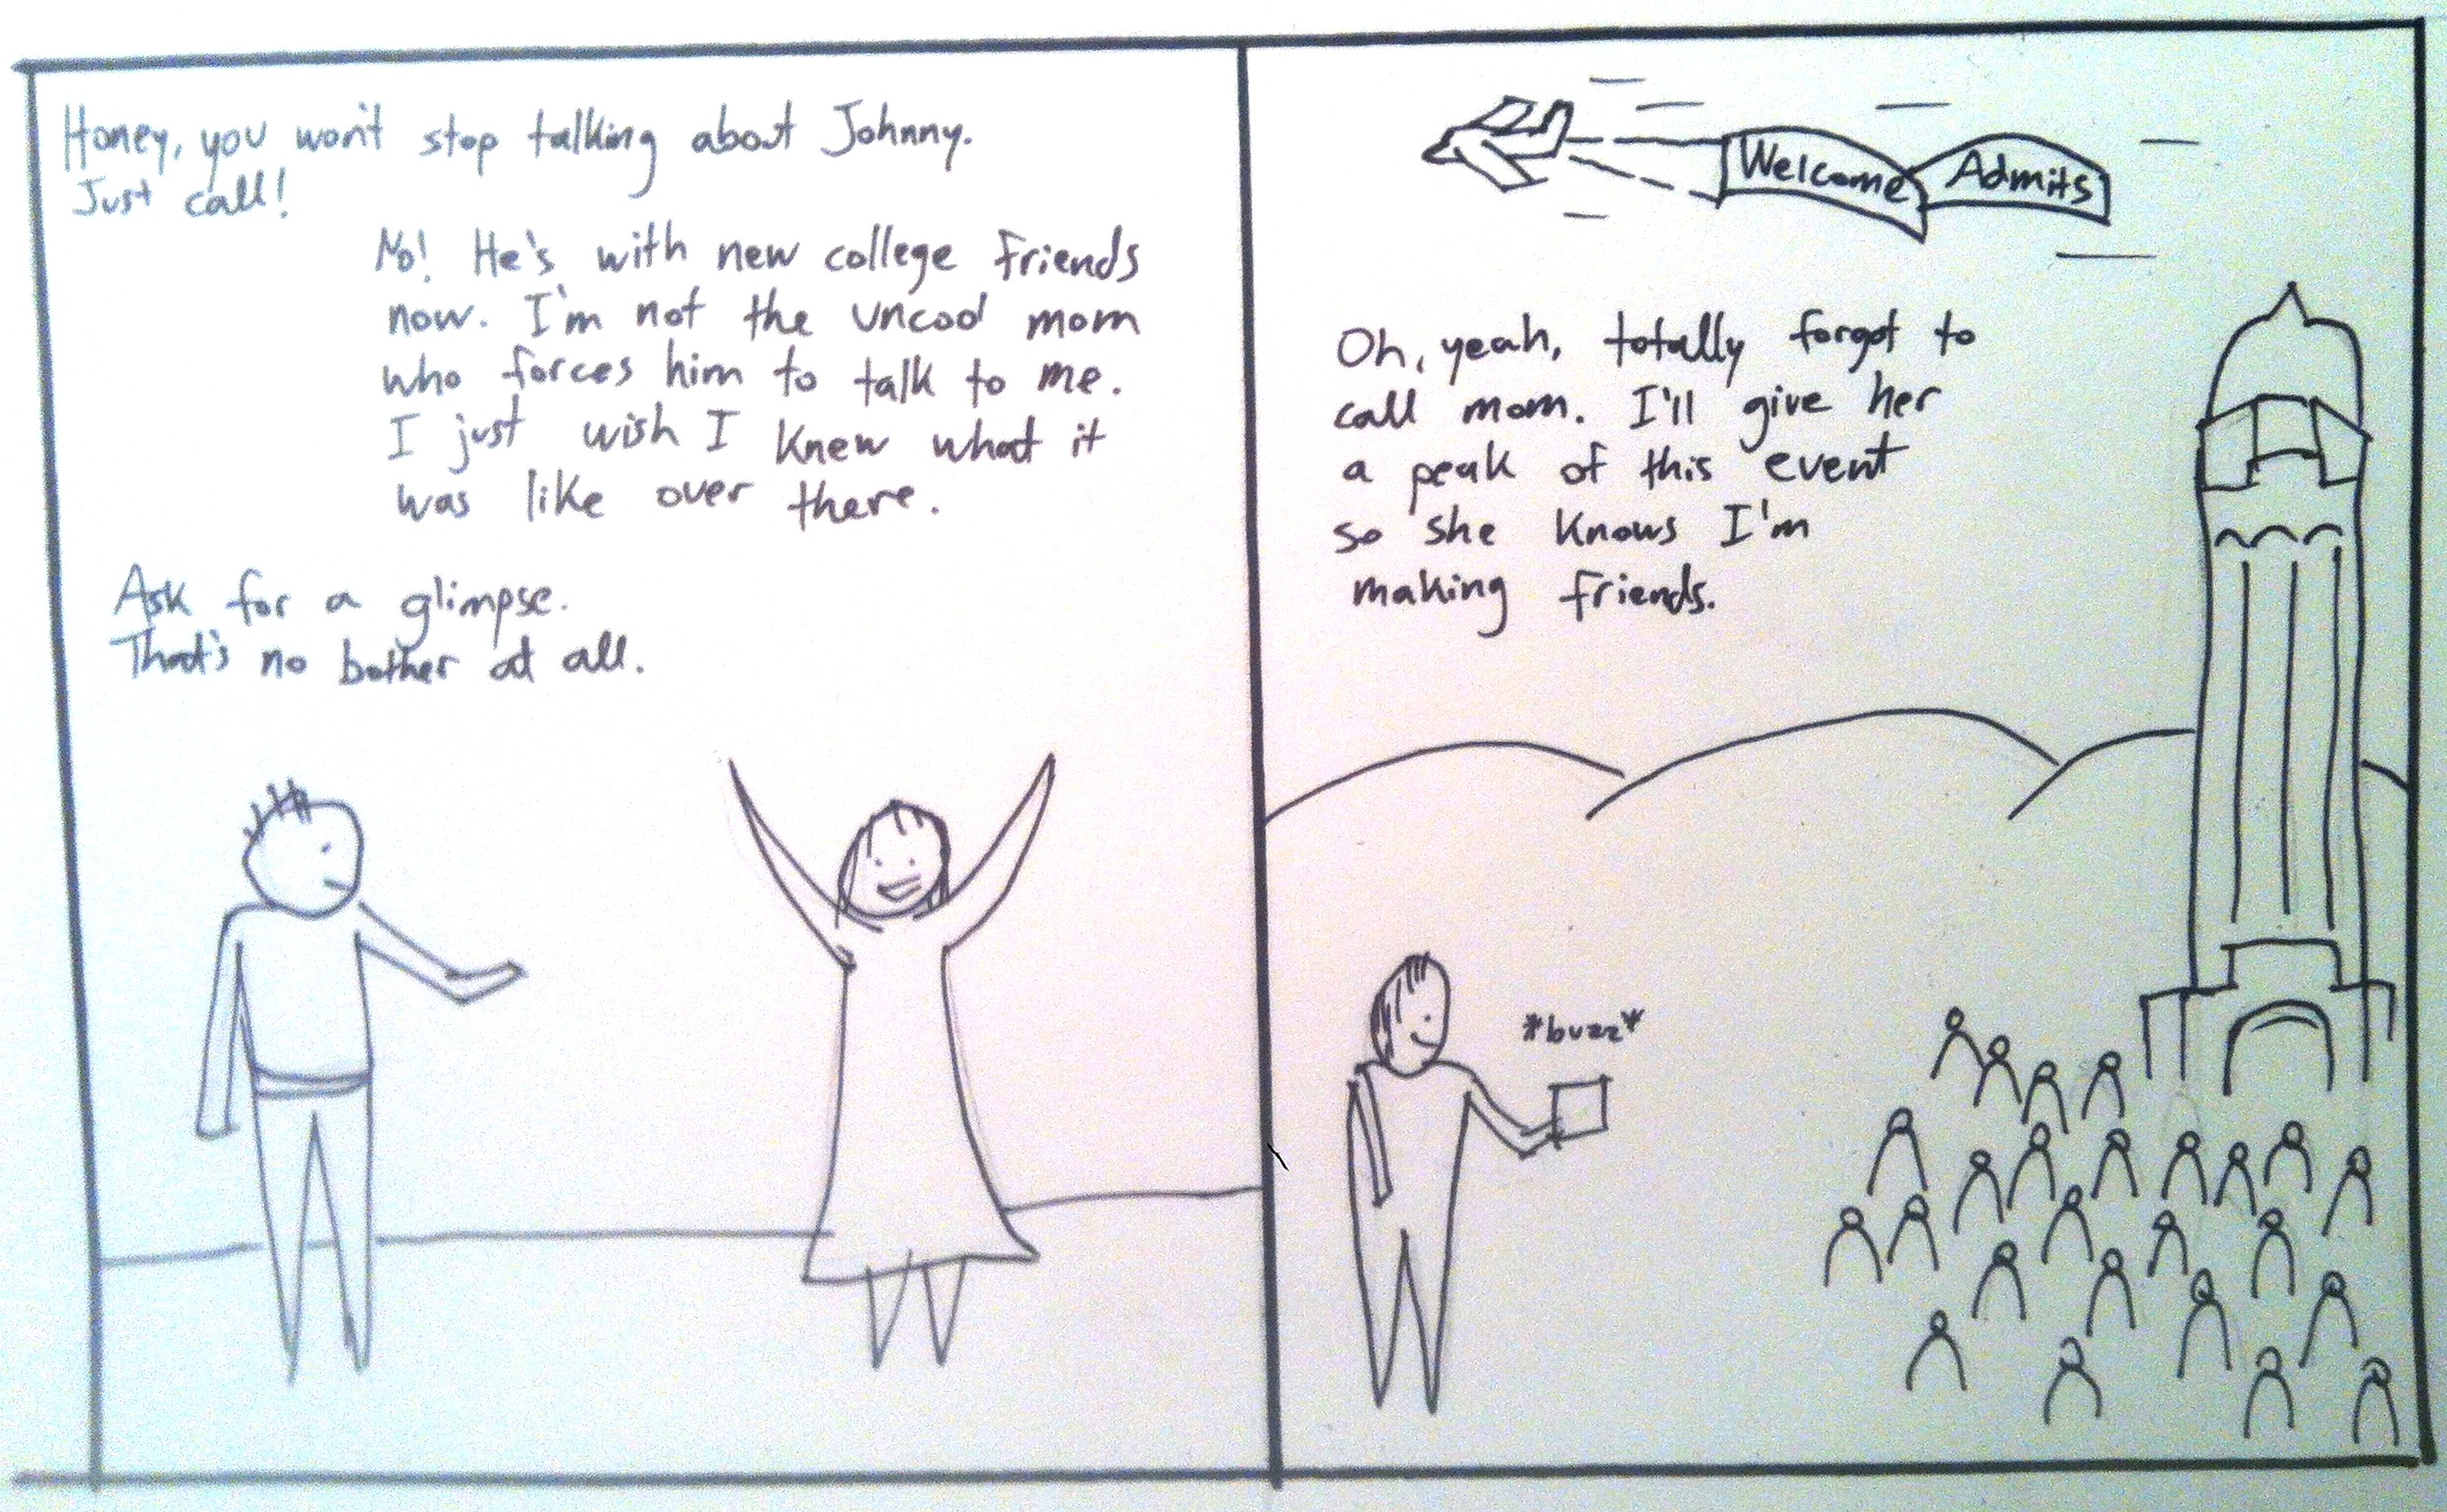 Honey, you won't stop talking about Johnny.
Just call!
No! He's with new college friends
now. I'm not the uncool mom
who forces him to talk to me.
I just wish I knew what it
was like over there.
Ask for a glimpse.
That's no bother at all.
Welcome Admits
Oh, yeah, totally forgot to
call mom. I'll give her
a peak of this event
so she knows I'm
making friends.
*buzz*